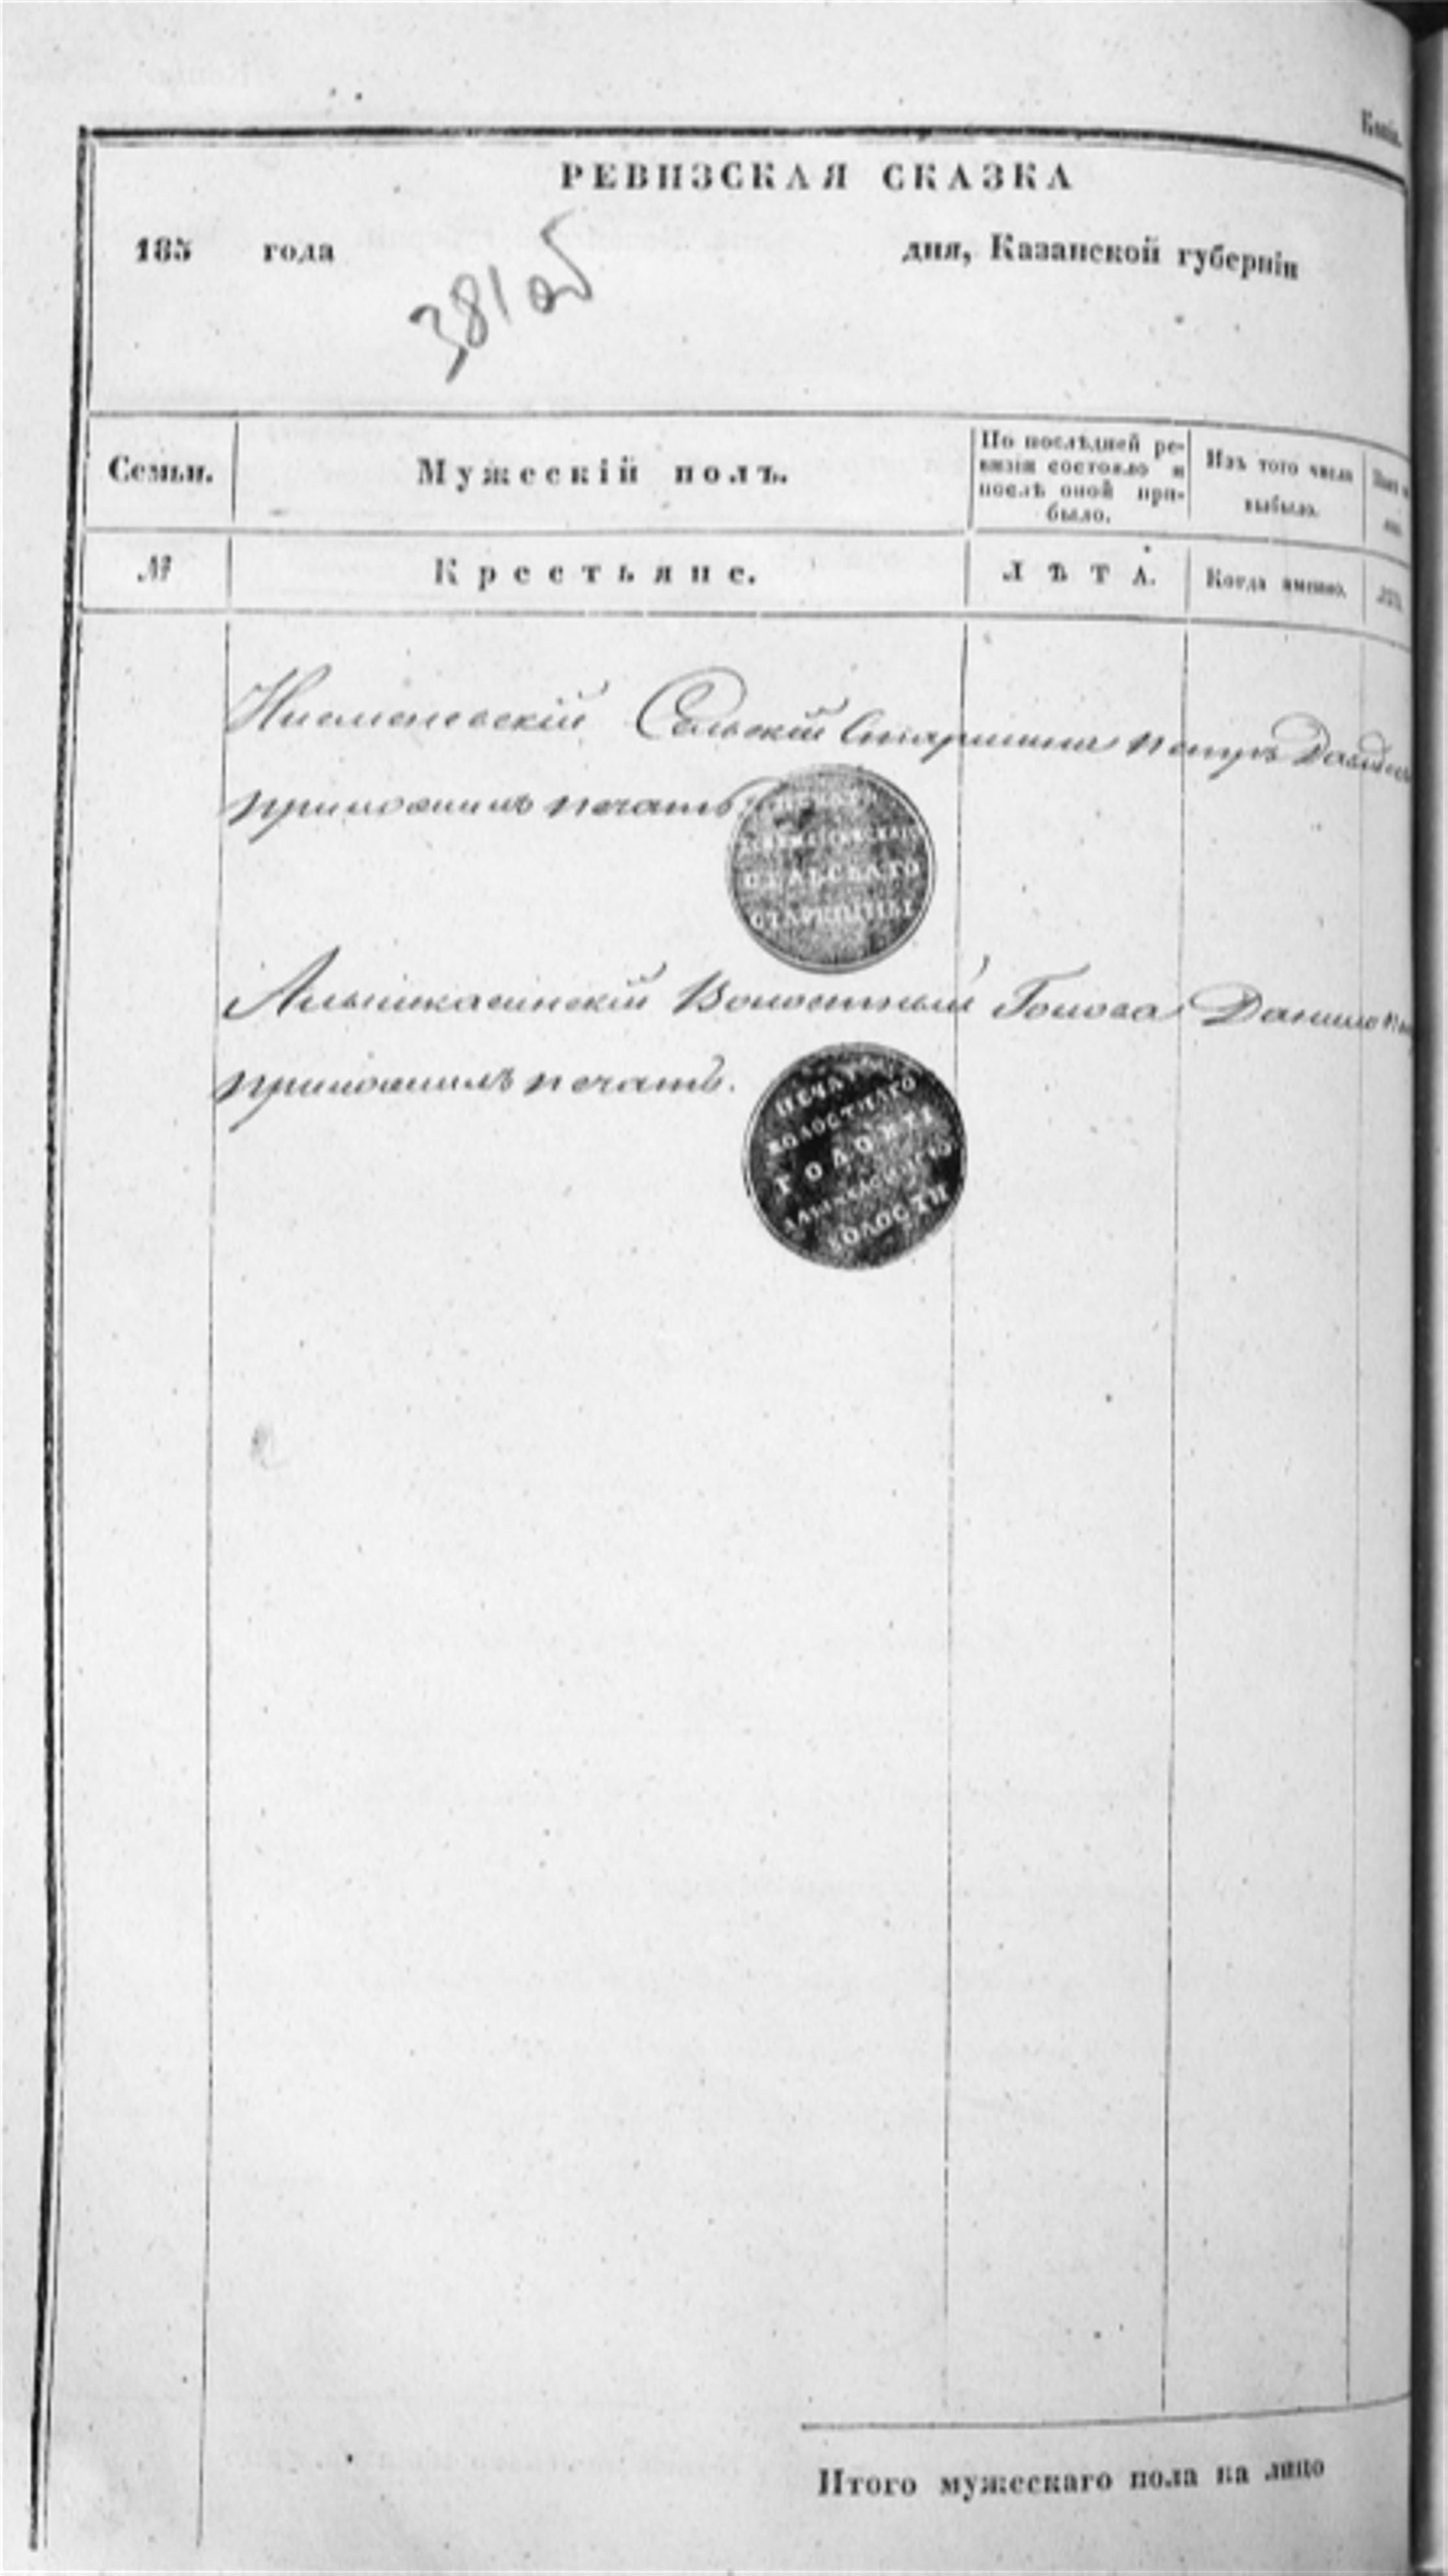 РЕВИЗСКАЯ СКАЗКА
185 года дня, Казанской губерніи
381 об
Семьи. Мужескій полъ. По послѣдней ре-
визіи состояло и
послѣ оной при-
было. Изъ того числа
выбыло.
№ Крестьяне. ЛѢТА. Когда именно.
Сельскій Старшина Петръ
приложилъ печать
СЕЛЬСКАГО
СТАРШИНЫ
Алышкасинскій Волостный Голова Данило
приложилъ печать.
ПЕЧАТЬ
ВОЛОСТНАГО
ГОЛОВЫ
ВОЛОСТИ
Итого мужескаго пола на лицо